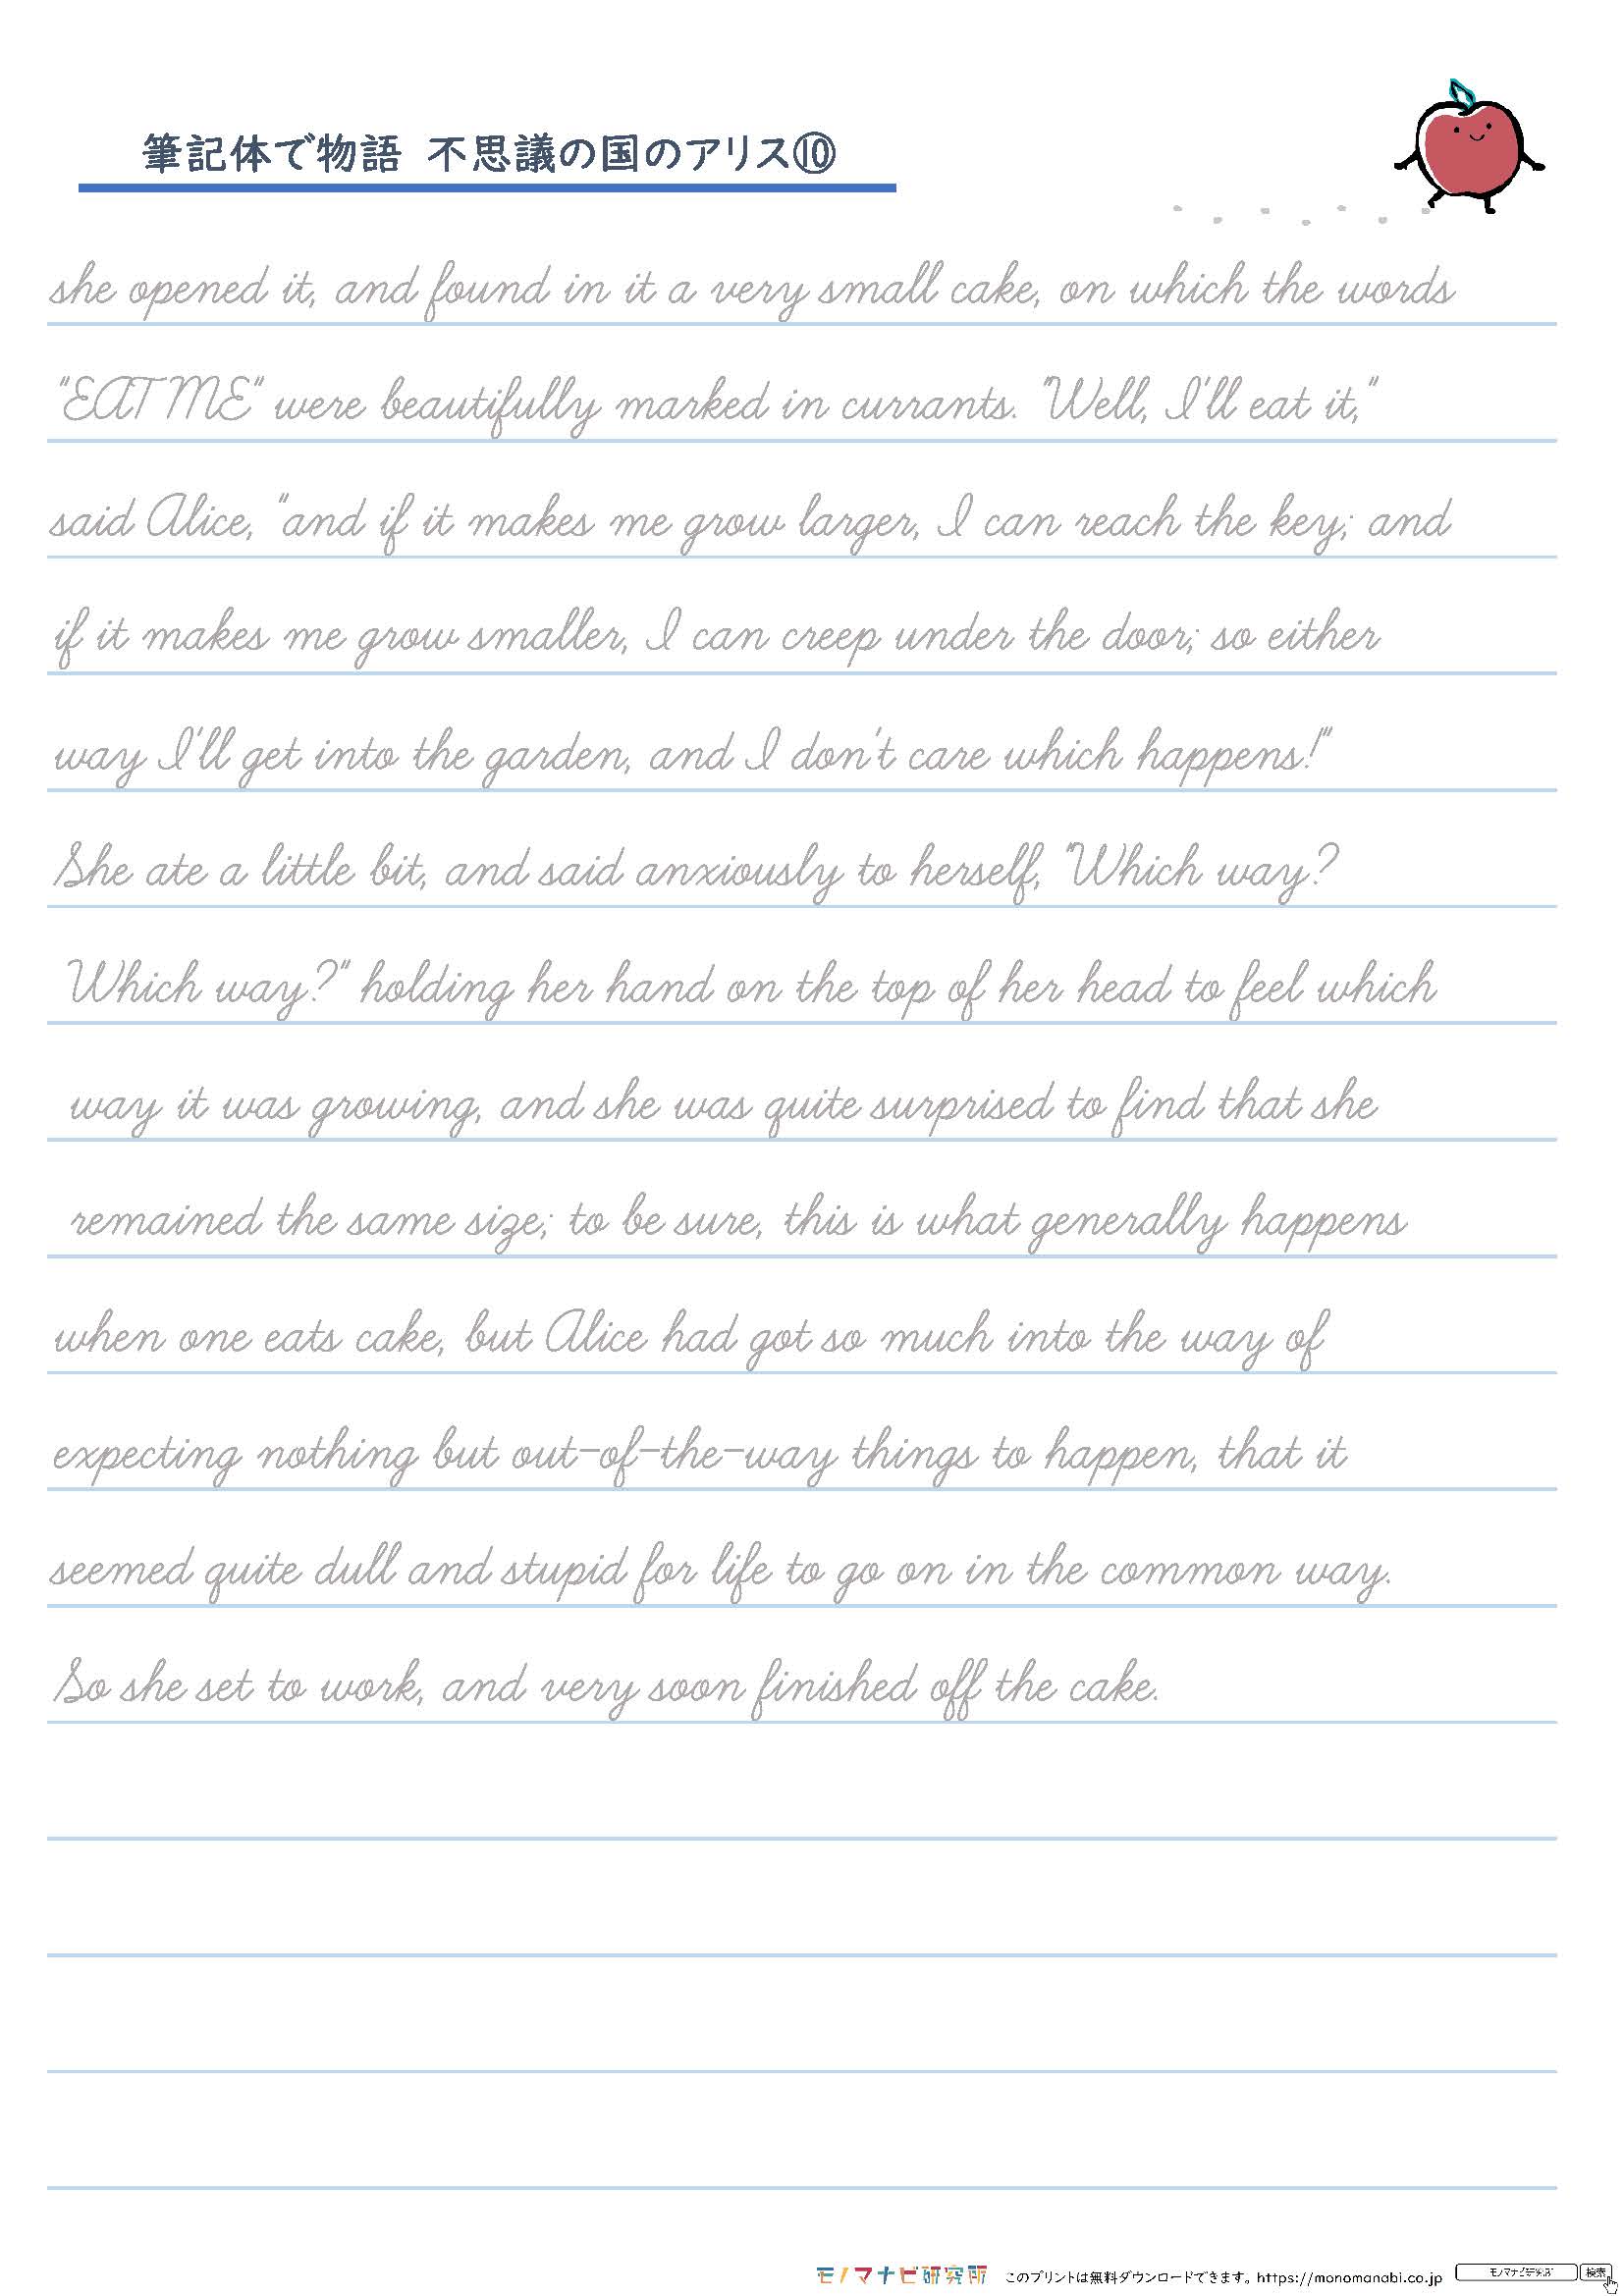 筆記体で物語 不思議の国のアリス⑩
she opened it, and found in it a very small cake, on which the words
"EAT ME" were beautifully marked in currants. "Well, I'll eat it,"
said Alice, "and if it makes me grow larger, I can reach the key; and
if it makes me grow smaller, I can creep under the door; so either
way I'll get into the garden, and I don't care which happens!"
She ate a little bit, and said anxiously to herself, "Which way?
Which way?" holding her hand on the top of her head to feel which
way it was growing, and she was quite surprised to find that she
remained the same size; to be sure, this is what generally happens
when one eats cake, but Alice had got so much into the way of
expecting nothing but out-of-the-way things to happen, that it
seemed quite dull and stupid for life to go on in the common way.
So she set to work, and very soon finished off the cake.
モノマナビ研究所 このプリントは無料ダウンロードできます。https://monomanabi.co.jp モノマナビ研究所 検索